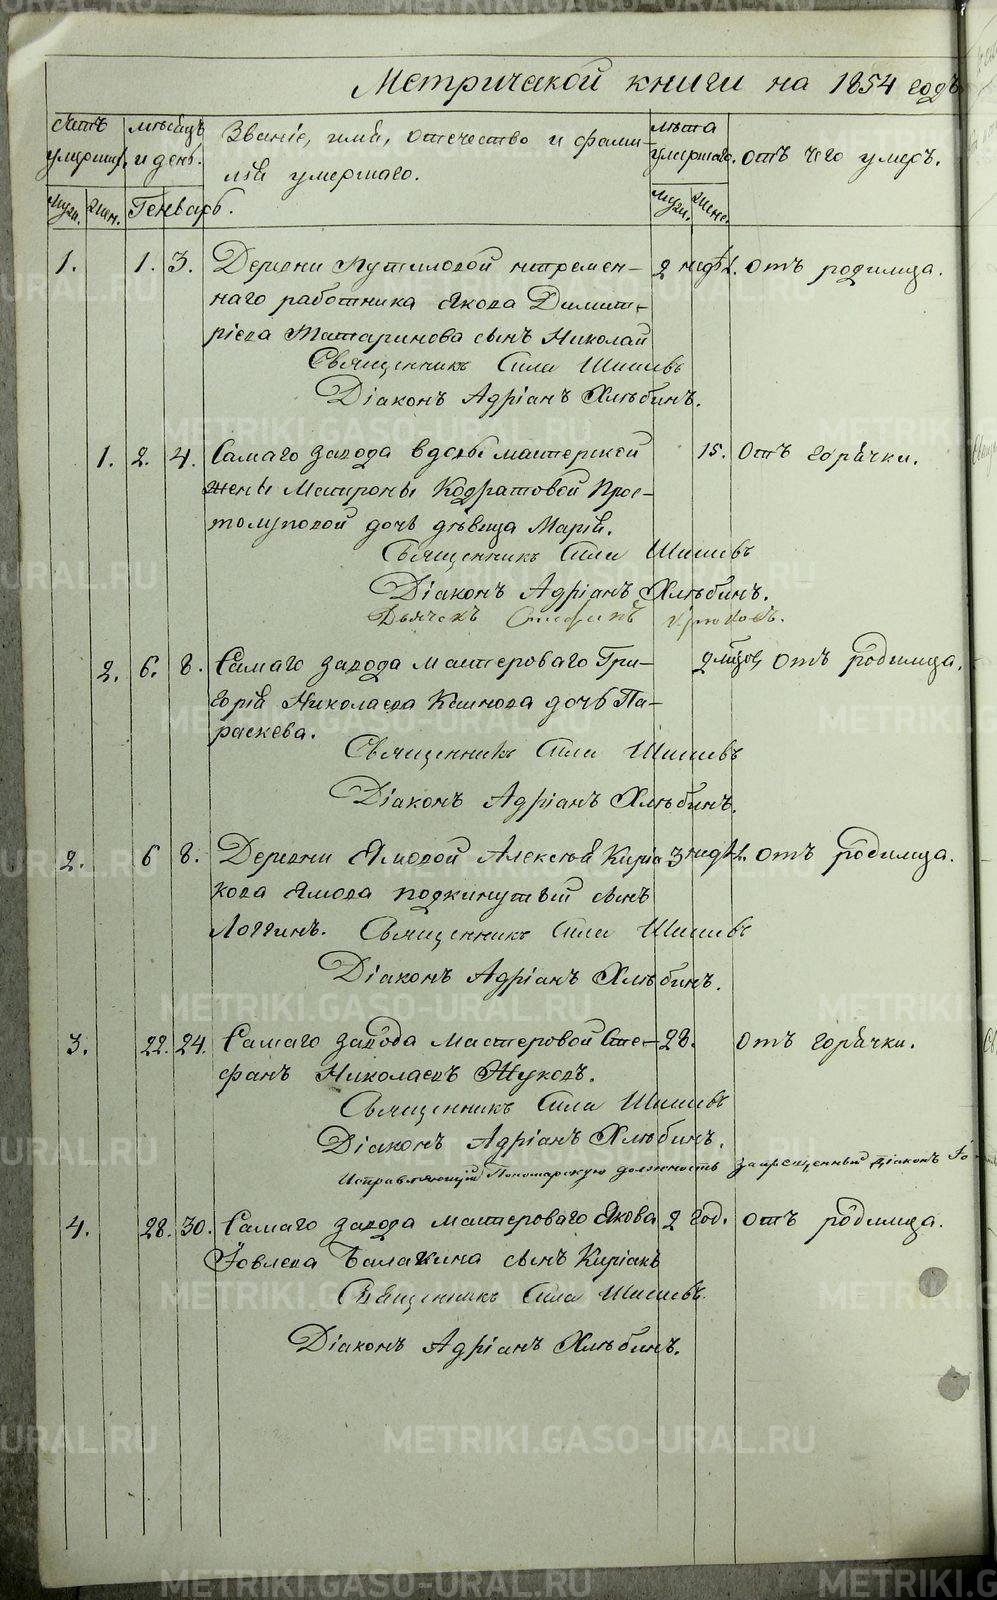 Метрической книги на 1854 годъ
Счетъ умерших.
мѣсяцъ и день.
Званіе, имя, отечество и фами-
лія умершаго.
лѣта умершаго.
отъ чего умеръ.
Муж. Жен. Генварь. Муж. Женс.
1. 1. 3. Деревни Путиловой непремен- 2 недѣл. отъ родимца.
наго работника Якова Димит-
ріева Татаринова сынъ Николай
Священникъ Сила Шишевъ
Діаконъ Адріанъ Хлѣбинъ.
1. 2. 4. Самаго завода вдовы мастерской 15. отъ горячки.
жены Матроны Кодратовой Прос-
толуповой дочь дѣвица Марія.
Священникъ Сила Шишевъ
Діаконъ Адріанъ Хлѣбинъ.
Дьячекъ Стефанъ Крюковъ.
2. 6. 8. Самаго завода мастероваго Гри- 2 мѣсяц. отъ родимца.
горія Николаева дочь Па-
раскева.
Священникъ Сила Шишевъ
Діаконъ Адріанъ Хлѣбинъ.
2. 6 8. Деревни Ямовой Алексѣя Кирья- 3 недѣл. отъ родимца.
кова Ямова подкинутый сынъ
Логгинъ. Священникъ Сила Шишевъ
Діаконъ Адріанъ Хлѣбинъ.
3. 22. 24. Самаго завода мастеровой Сте- 28. отъ горячки.
фанъ Николаевъ Жуковъ.
Священникъ Сила Шишевъ
Діаконъ Адріанъ Хлѣбинъ.
Исправляющій Пономарскую должность запрещенный діаконъ Іо-
4. 28. 30. Самаго завода мастероваго Якова 2 год. отъ родимца.
Іовлева Балакина сынъ Киріакъ
Священникъ Сила Шишевъ
Діаконъ Адріанъ Хлѣбинъ.
METRIKI.GASO-URAL.RU